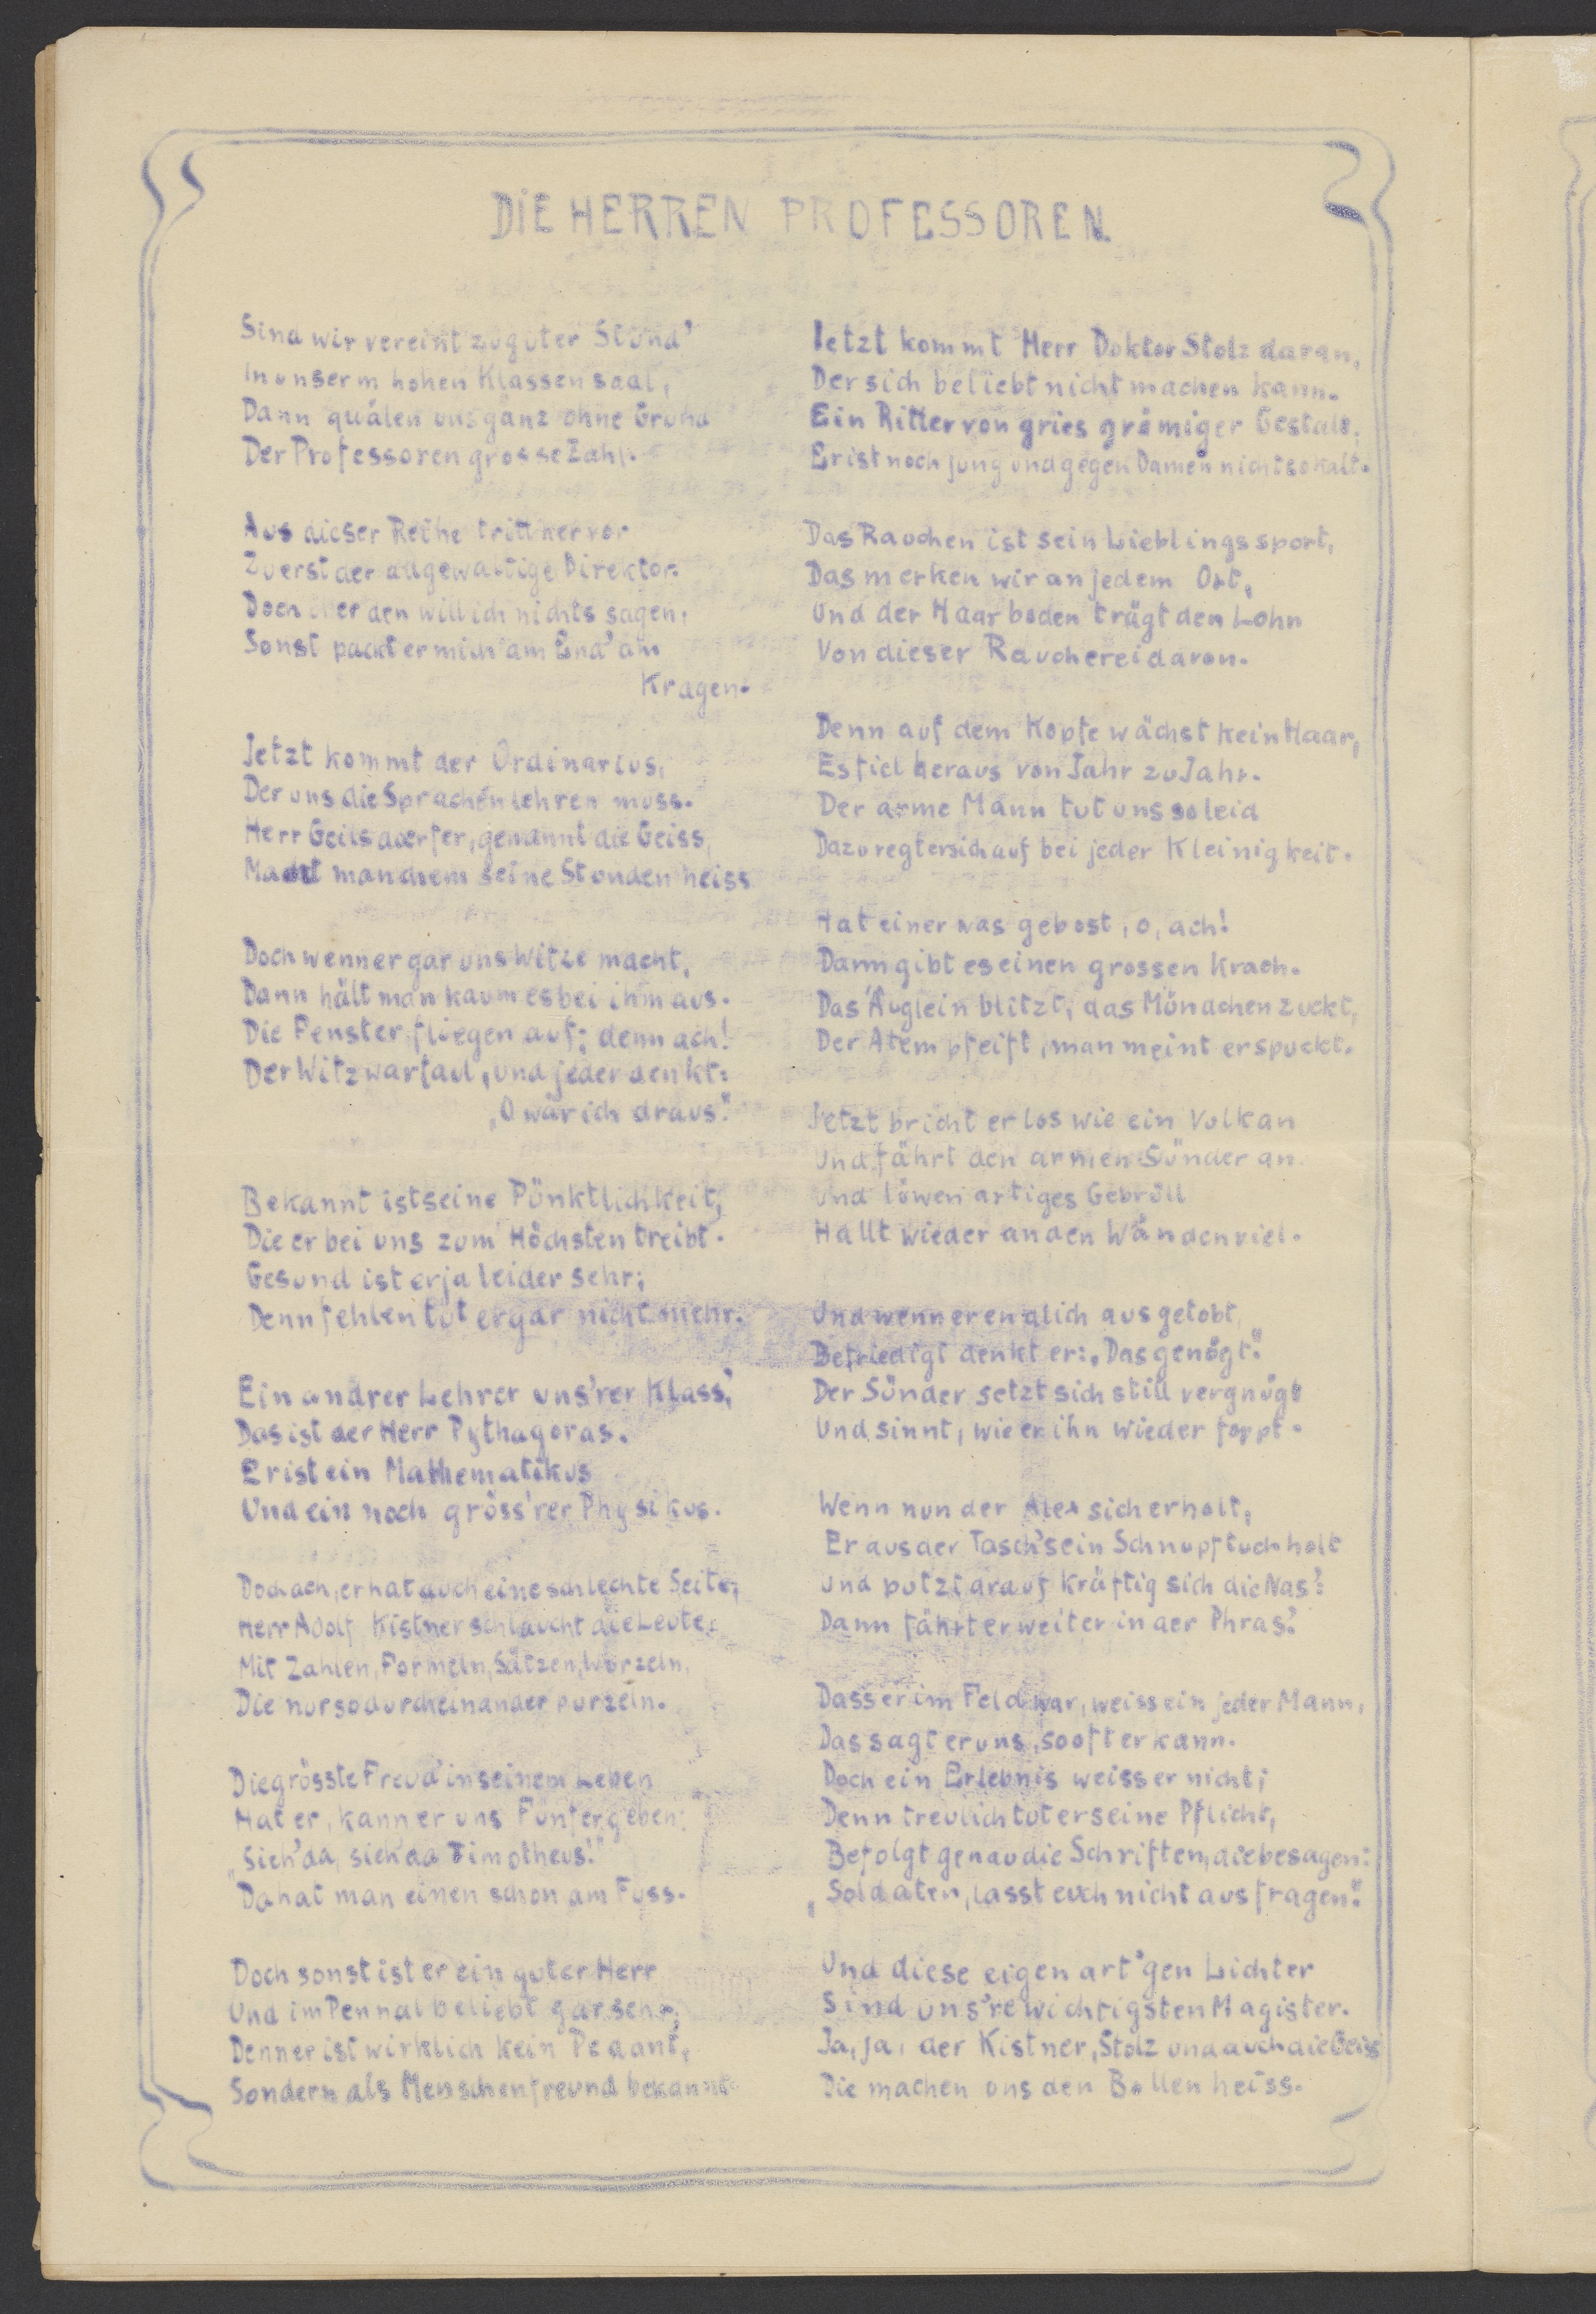 DIE HERREN PROFESSOREN.
Sind wir vereint zu guter Stund'
In unserm hohen Klassensaal,
Dann quälen uns ganz ohne Grund
Der Professoren grosse Zahl.
Aus dieser Reihe tritt hervor
Zuerst der allgewaltige Direktor.
Doch über den will ich nichts sagen,
Sonst packt er mich am End' am
Kragen.
Jetzt kommt der Ordinarius,
Der uns die Sprachen lehren muss.
Herr Geilsdoerfer, genannt die Geiss,
Macht manchem seine Stunden heiss
Doch wenn er gar uns Witze macht,
Dann hält man kaum es bei ihm aus.
Die Fenster fliegen auf; denn ach!
Der Witz war faul, und jeder denkt:
„O wär ich draus."
Bekannt ist seine Pünktlichkeit,
Die er bei uns zum Höchsten treibt.
Gesund ist er ja leider sehr;
Denn fehlen tut er gar nicht mehr.
Ein andrer Lehrer uns'rer Klass',
Das ist der Herr Pythagoras.
Er ist ein Mathematikus
Und ein noch gröss'rer Physikus.
Doch ach, er hat auch eine schlechte Seite;
Herr Adolf Kistner schlaucht die Leute
Mit Zahlen, Formeln, Sätzen, Wurzeln,
Die nur so durcheinander purzeln.
Die grösste Freud' in seinem Leben
Hat er, kann er uns Fünfer geben;
„Sieh' da, sieh' da Timotheus!"
Da hat man einen schon am Fuss.
Doch sonst ist er ein guter Herr
Und im Pennal beliebt gar sehr,
Denn er ist wirklich kein Pedant,
Sondern als Menschenfreund bekannt.
Jetzt kommt Herr Doktor Stolz daran,
Der sich beliebt nicht machen kann.
Ein Ritter von griesgrämiger Gestalt,
Er ist noch jung und gegen Damen nicht so kalt.
Das Rauchen ist sein Lieblingssport,
Das merken wir an jedem Ort,
Und der Haarboden trägt den Lohn
Von dieser Raucherei davon.
Denn auf dem Kopfe wächst kein Haar,
Es fiel heraus von Jahr zu Jahr.
Der arme Mann tut uns so leid
Dazu regt er sich auf bei jeder Kleinigkeit.
Hat einer was gebost, o, ach!
Dann gibt es einen grossen Krach.
Das Äuglein blitzt, das Mündchen zuckt,
Der Atem pfeift, man meint er spuckt.
Jetzt bricht er los wie ein Vulkan
Und fährt den armen Sünder an
Und löwenartiges Gebrüll
Hallt wieder an den Wänden viel.
Und wenn er endlich ausgetobt,
Befriedigt denkt er: „Das genügt."
Der Sünder setzt sich still vergnügt
Und sinnt, wie er ihn wieder foppt.
Wenn nun der Alex sich erholt,
Er aus der Tasch' sein Schnupftuch holt
Und putzt drauf kräftig sich die Nas':
Dann fährt er weiter in der Phras'.
Dass er im Feld war, weiss ein jeder Mann,
Das sagt er uns, so oft er kann.
Doch ein Erlebnis weiss er nicht;
Denn treulich tut er seine Pflicht,
Befolgt genau die Schriften, die besagen:
„Soldaten, lasst euch nicht ausfragen."
Und diese eigenart'gen Lichter
Sind uns're wichtigsten Magister.
Ja, ja, der Kistner, Stolz und auch die Geiss
Die machen uns den Bollen heiss.